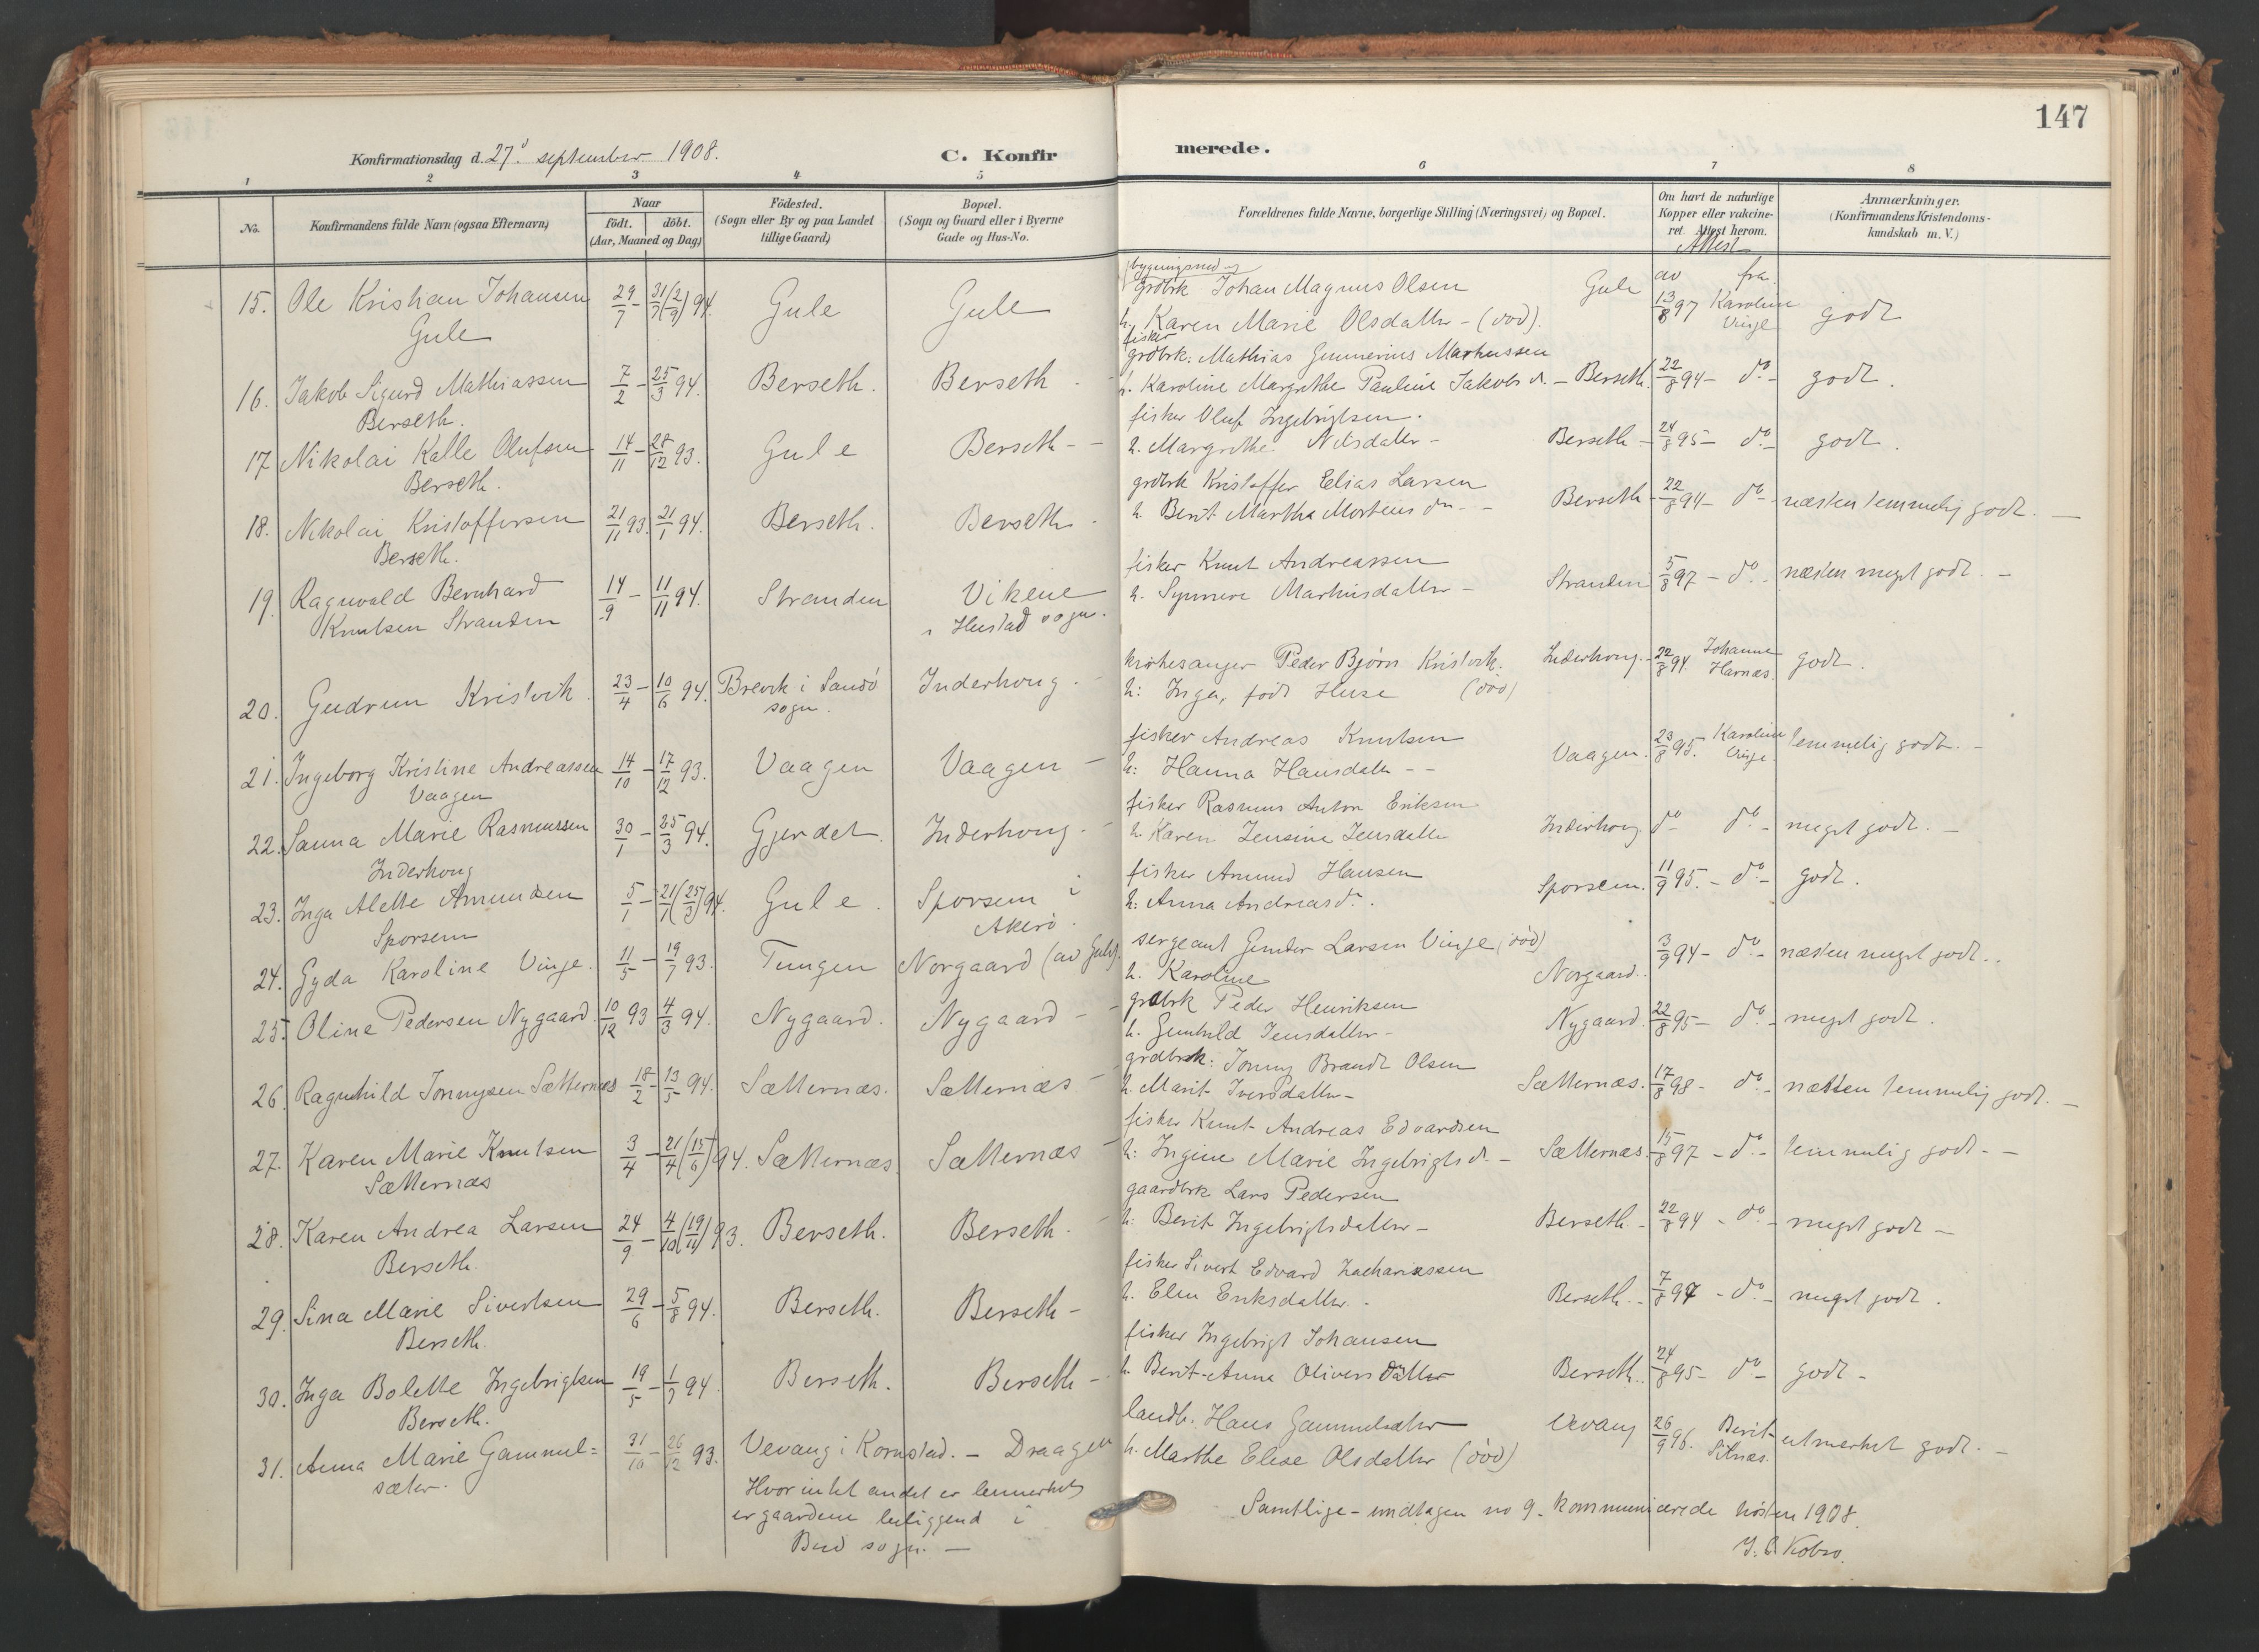 147
Konfirmationsdag d. 27d september 1908.
C. Konfirmerede.
1 2 3 4 5 6 7 8
No.
Konfirmandens fulde Navn (ogsaa Efternavn)
Naar
födt. döbt.
(Aar, Maaned og Dag)
Födested.
(Sogn eller By og paa Landet
tillige Gaard)
Bopæl.
(Sogn og Gaard eller i Byerne
Gade og Hus-No.
Forældrenes fulde Navne, borgerlige Stilling (Næringsvei) og Bopæl.
Om havt de naturlige
Kopper eller vakcine-
ret Attest herom.
Attest
Anmærkninger.
(Konfirmandens Kristendoms-
kundskab m. V.)
bygningssned og
15. Ole Kristian Johansen 29/7 - 31/7 (2/9) 94. Gule Gule grdbrk Johan Magnus Olsen Gule av fra
Gule h. Karen Marie Olsdatter - (död). 13/8 97 Karoline Vinge godt
fisker
grdbrk. Mathias Gunnerius Markussen
16. Jakob Sigurd Mathiassen 7/2 - 25/3 94. Berseth. Berseth h. Karoline Margrethe Pauline Jakobsd. - Berseth. 22/8 94 - do - godt.
Berseth.
fisker Oluf Ingebrigtsen.
17 Nikolai Kalle Olufsen 14/11 - 28/12 93. Gule Berseth - h. Margrethe Nilsdatter - Berseth - 24/8 95 - do - godt.
Berseth.
grdbrk Kristoffer Elias Larsen
18. Nikolai Kristoffersen 21/11 93. 21/1 94. Berseth. Berseth h. Berit Martha Mortensdn - Berseth - 22/8 94 - do - næsten temmelig godt. -
Berseth.
fisker Knut Andreassen
19. Ragnvald Bernhard 14/9 - 11/11 94. Stranden Vikene h. Synnøve Markusdatter - Stranden 5/8 97 - do - næsten meget godt. -
Knutsen Stranden i Hustad sogn.
kirkesanger Peder Bjørn Kristvik. Inderhoug - 22/8 94. Johanne Harnæs. godt.
20. Gudrun Kristvik. 23/4 - 10/6 94. Brevik i Sandö Inderhoug. h: Inga, födt Huse (död)
sogn.
fisker Andreas Knutsen
21. Ingeborg Kristine Andreassen 14/10 - 17/12 93. Vaagen Vaagen - h: Hanna Hansdatter - Vaagen. 23/8 95. Karoline Vinge temmelig godt. -
Vaagen
fisker Rasmus Anton Eriksen
22. Sanna Marie Rasmussen 30/1 - 25/3 94. Gjerdet. Inderhoug. h. Karen Jensine Jensdatter Inderhoug do do - meget godt. -
Inderhoug
fisker Amund Hansen
23. Inga Alette Amundsen 5/1 - 21/1 (25/3) 94. Gule. Sporsem i h: Anna Andreasd. Sporsem. 11/9 95. - do - godt.
Sporsem Akerö.
sergeant Gunder Larsen Vinge (död)
24. Gyda Karoline Vinge. 11/5 - 19/7 93. Tungen Norgaard (av Gule). h. Karoline Norgaard. 3/9 94 - do - næsten meget godt.
grdbrk Peder Henriksen
25. Oline Pedersen Nygaard. 10/12 93 4/3 94. Nygaard. Nygaard - h. Gunhild Jensdatter - Nygaard. 22/8 95 - do - meget godt.
grdbrk: Jonny Brandt Olsen
26. Ragnhild Jonnysen Sætternæs 18/2 - 13/5 94. Sætternæs. Sætternæs - h. Marit Iversdatter - Sætternæs. 17/8 98 - do - næsten temmelig godt. -
fisker Knut Andreas Edvardsen
27. Karen Marie Knutsen 3/4 - 21/4 (15/6) 94. Sætternæs. Sætternæs h: Ingine Marie Ingebrigtsd. - Sætternæs. 15/8 97 - do - temmelig godt. -
Sætternæs
gaardbrk Lars Pedersen
28. Karen Andrea Larsen 24/9 - 4/10 (19/11) 93. Berseth. Berseth. h: Berit Ingebrigtsdatter - Berseth. - 22/8 94 - do - meget godt -
Berseth.
fisker Sivert Edvard Zachariassen
29. Sina Marie Sivertsen 29/6 - 5/8 94. Berseth. Berseth - h. Elen Eriksdatter. Berseth. - 7/8 97 - do - meget godt.
Berseth.
fisker Ingebrigt Johansen
30. Inga Bolette Ingebrigtsen 19/5 - 1/7 94. Berseth. Berseth - h. Berit-Anna Oliversdatter Berseth. 24/8 95 - do - godt -
Berseth.
landh. Hans Gammelsæter Vevang 26/9 96. Berit Sitnæs. utmerket godt. -
31. Anna Marie Gammel= 31/10 - 26/12 93. Vevang i Kornstad. - Draagen h. Marthe Elise Olsdatter (död)
sæter.
Hvor intet andet er bemerket,
er gaardene beliggend i
Bud sogn. -
Samtlige - undtagen no 9 - kommunicerede hösten 1908.
J. C. Kobro.